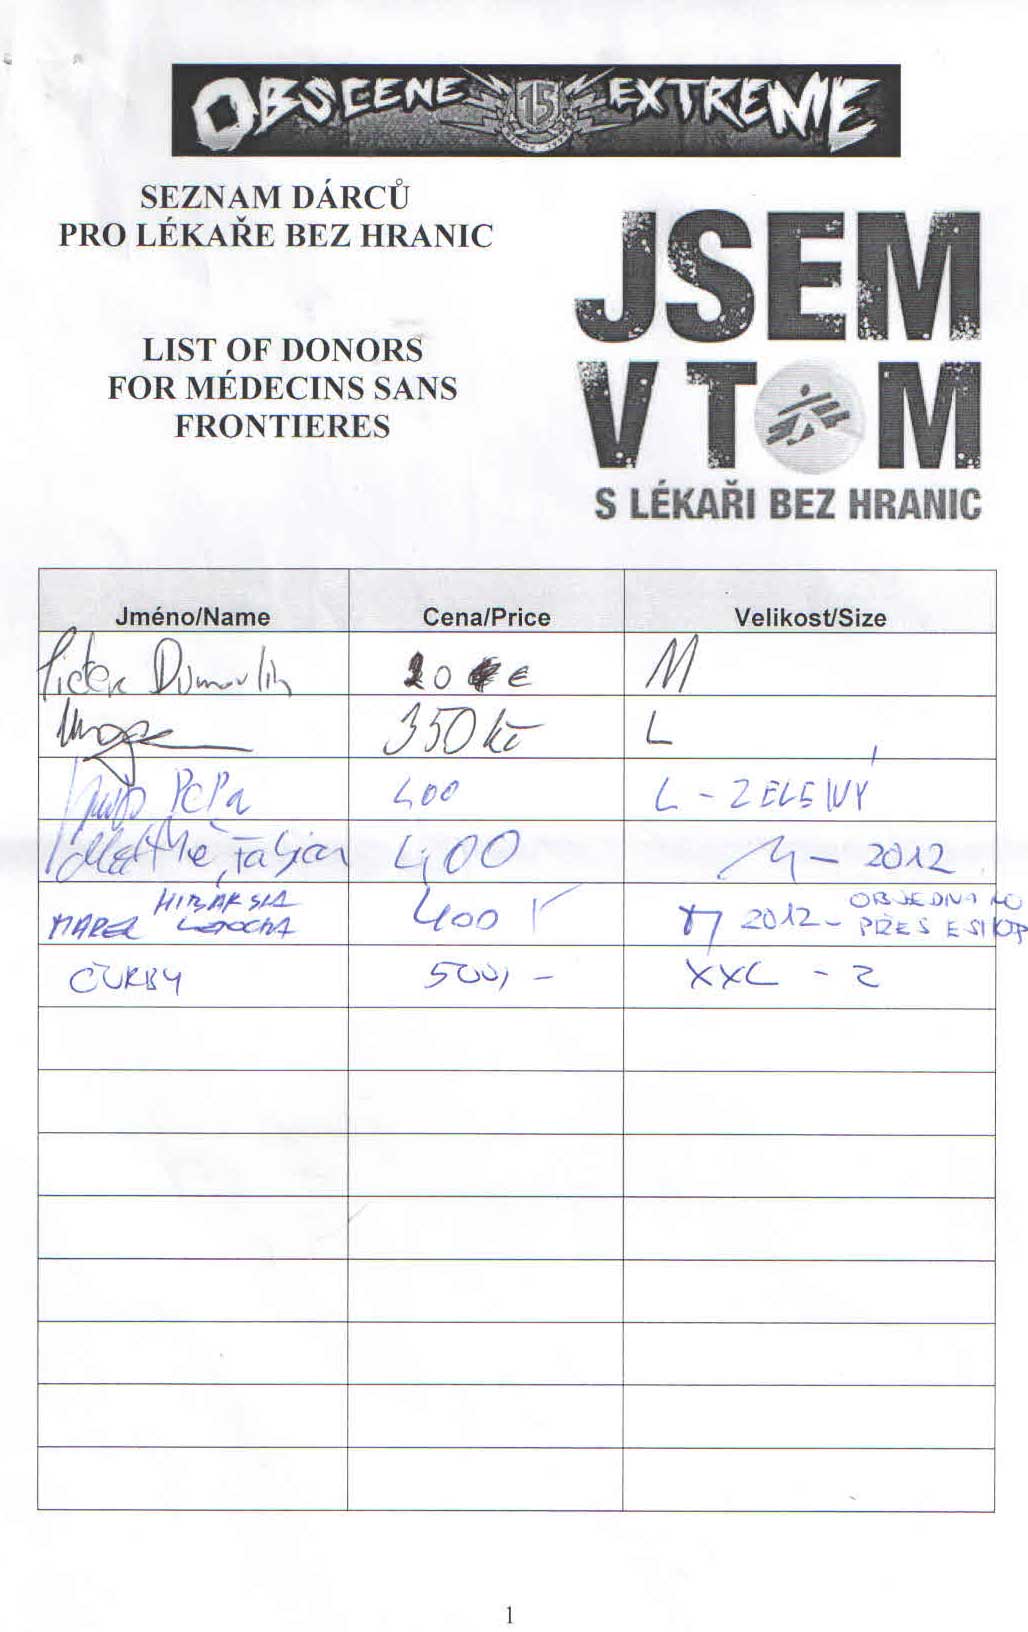 OBSCENE 15 EXTREME
SEZNAM DÁRCŮ
PRO LÉKAŘE BEZ HRANIC
LIST OF DONORS
FOR MÉDECINS SANS
FRONTIERES
JSEM
V TOM
S LÉKAŘI BEZ HRANIC
Jméno/Name Cena/Price Velikost/Size
Pieter Dumoulin 20 € M
350 Kč L
PEPA 400 L - ZELENÝ
400 M - 2012
MAREK 400 M 2012 - OBJEDNÁNO
PŘES ESHOP
ČURBY 500,- XXL - 2
1